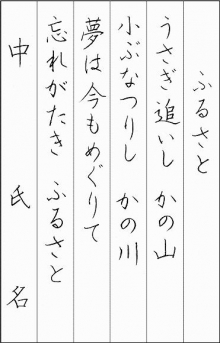 ふるさと
うさぎ追いし かの山
小ぶなつりし かの川
夢は今もめぐりて
忘れがたき ふるさと
中 氏 名